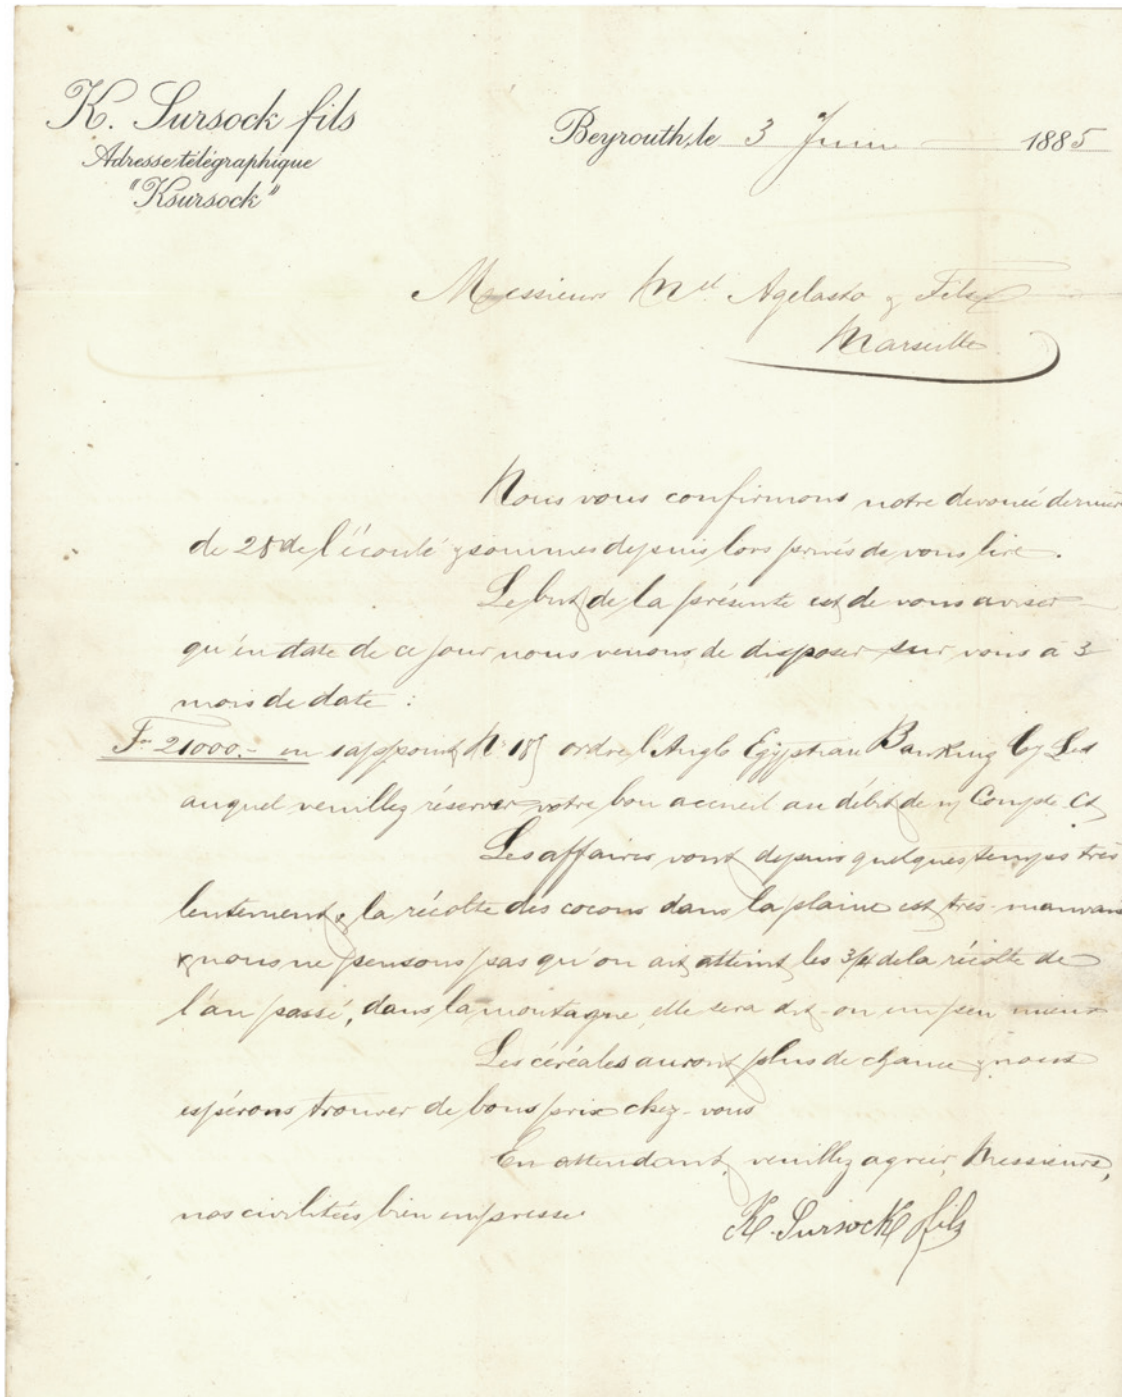 K. Sursock fils
Adresse télégraphique
"Ksursock"
Beyrouth, le 3 Juin 1885
Messieurs Md. Agelasto & Fils
Marseille
Nous vous confirmons notre devouée dernière
de 28 de l'écoulé & sommes depuis lors privés de vous lire.
Le but de la présente est de vous aviser
qu'en date de ce jour nous venons de disposer sur vous à 3
mois de date :
Fcs 21000.- en 1 appoint N° 18 ordre l'Anglo Egyptian Banking Cy Led
auquel veuillez réserver votre bon accueil au débit de n/ Compte Ct
Les affaires vont depuis quelques temps très
lentement, la récolte des cocons dans la plaine est très-mauvaise
& nous ne pensons pas qu'on ait atteint les 3/4 de la récolte de
l'an passé, dans la montagne, elle sera dit-on un peu mieux
Les céréales auront plus de chance & nous
espérons trouver de bons prix chez-vous
En attendant, veuillez agréer, Messieurs,
nos civilités bien empressé
K. Sursock fils